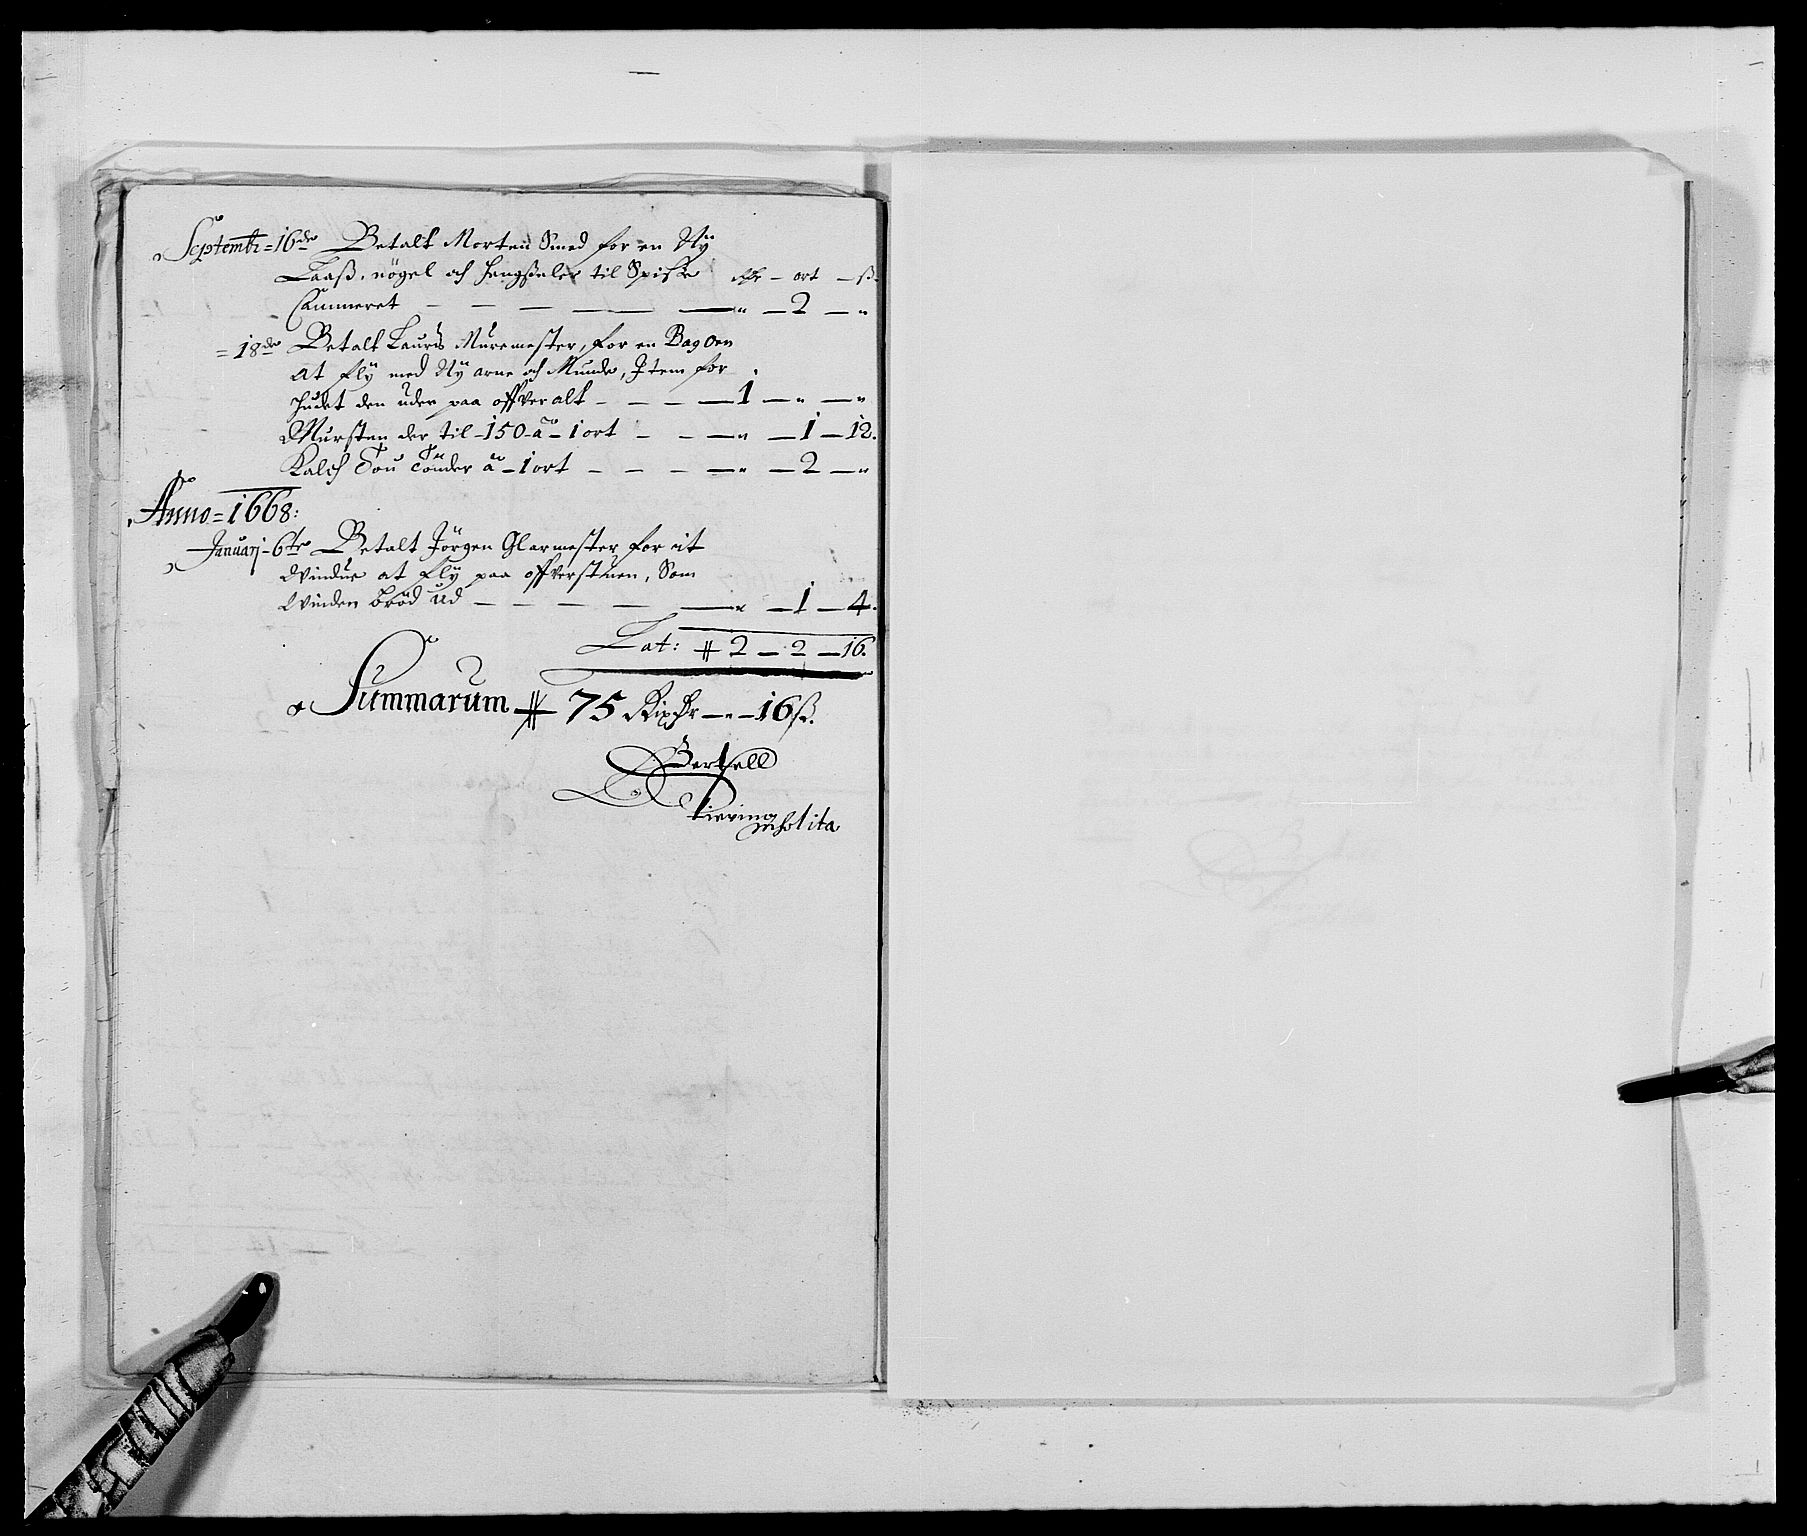 Septembr = 16de Betalt Morten Smed for en Nÿ
Laaß, nögel och hengßeler til Spiße Rdr – ort – ß.
Cammeret — — — — „ — 2 — „
= 18de Betalt Laurs Muremester, for en Bagoen
at flÿ med Nÿ arne och Munde, Item for
huset den uden paa offveralt — — — 1 — „ — „
Mursten der til 150 â 1 ort — — „ — 1 — 12.
Kalch Tou Tönder â 1 ort — — — „ — 2 — „
Anno = 1668:
Januarj 6te Betalt Jörgen Glarmester for eit
Vindue at flÿ paa offverstuen, Som
Vinden bröd ud — — — — „ — 1 — 4.
Lat: 2 — 2 — 16.
Summarum 75 Rixdr — „ — 16 ß.
Bertell